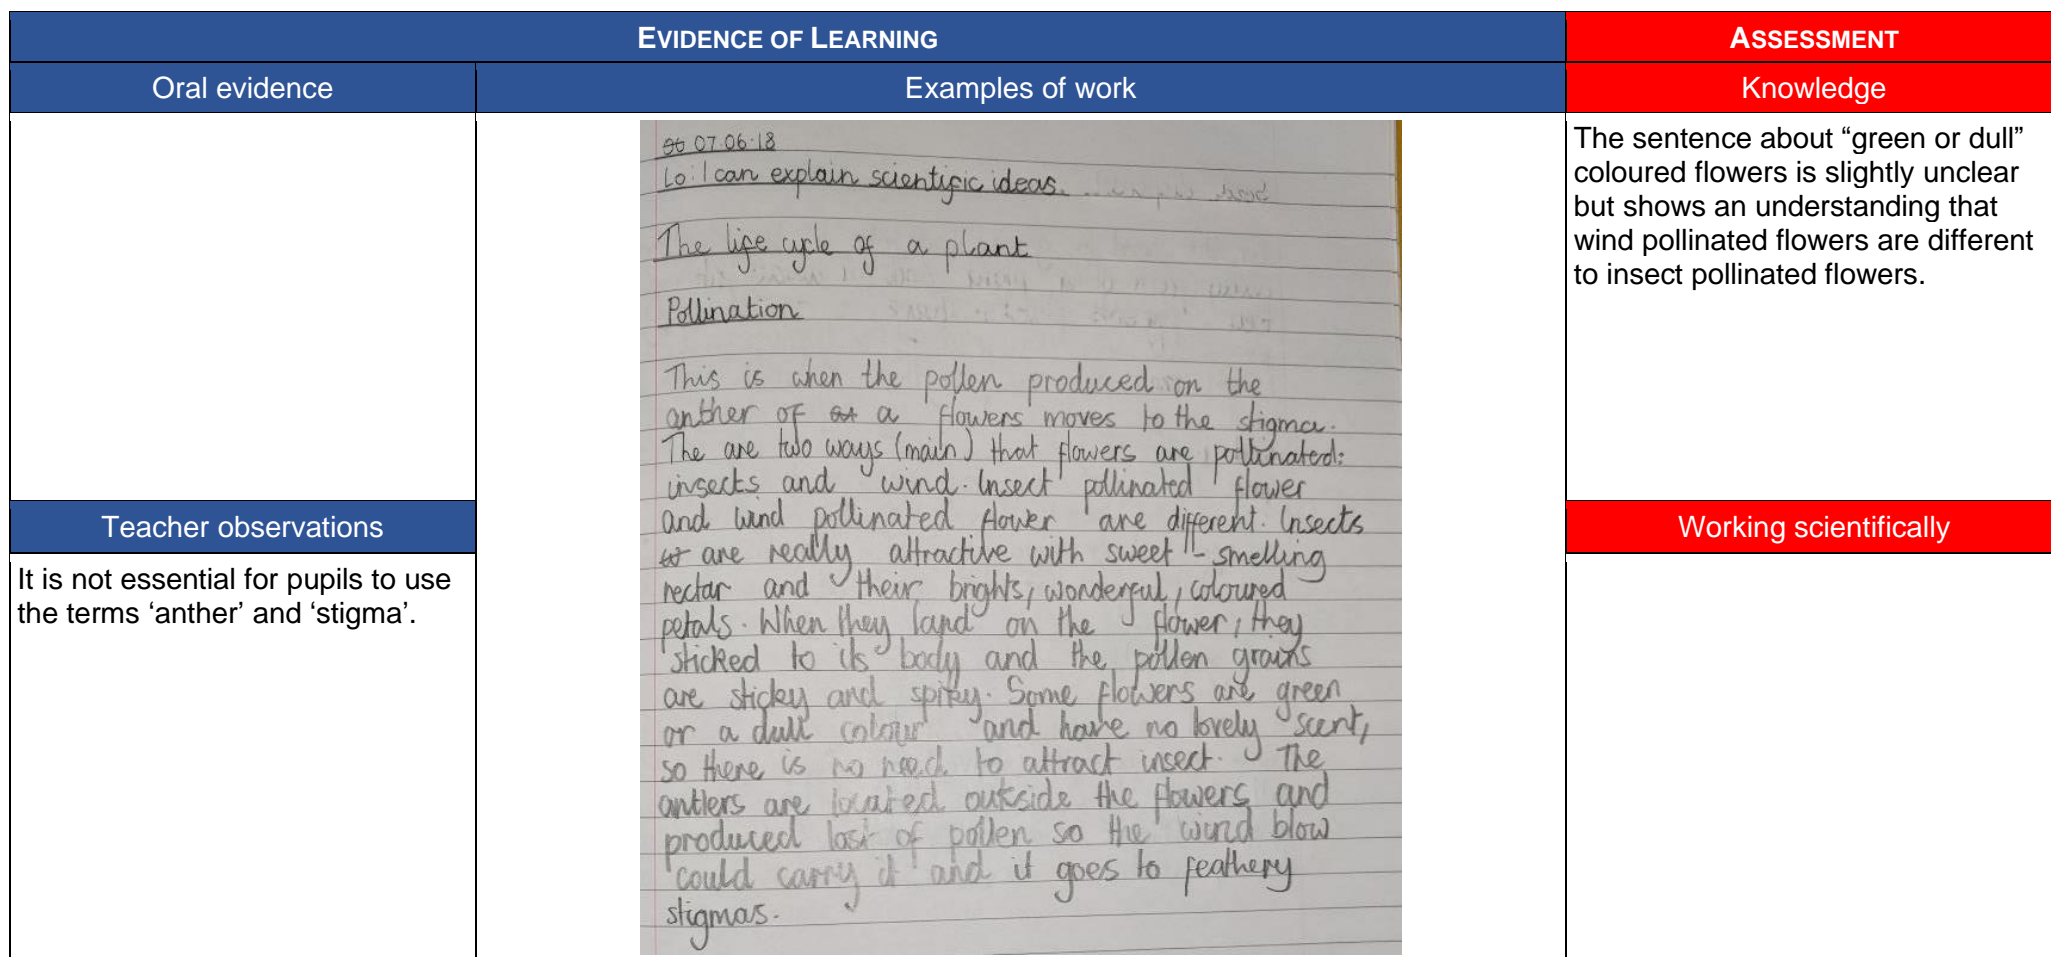 EVIDENCE OF LEARNING
ASSESSMENT
Oral evidence
Examples of work
Knowledge
07.06.18
Lo: I can explain scientific ideas.
The life cycle of a plant
Pollination
This is when the pollen produced on the
anther of a flowers moves to the stigma.
The are two ways (main) that flowers are pollinated:
insects and wind. Insect pollinated flower
and wind pollinated flower are different. Insects
are really attractive with sweet-smelling
nectar and their brights, wonderful, coloured
petals. When they land on the flower, they
sticked to its body and the pollen grains
are sticky and spiky. Some flowers are green
or a dull colour and have no lovely scent,
so there is no need to attract insect. The
antlers are located outside the flowers and
produced lost of pollen so the wind blow
could carry it and it goes to feathery
stigmas.
The sentence about “green or dull”
coloured flowers is slightly unclear
but shows an understanding that
wind pollinated flowers are different
to insect pollinated flowers.
Teacher observations
It is not essential for pupils to use
the terms ‘anther’ and ‘stigma’.
Working scientifically